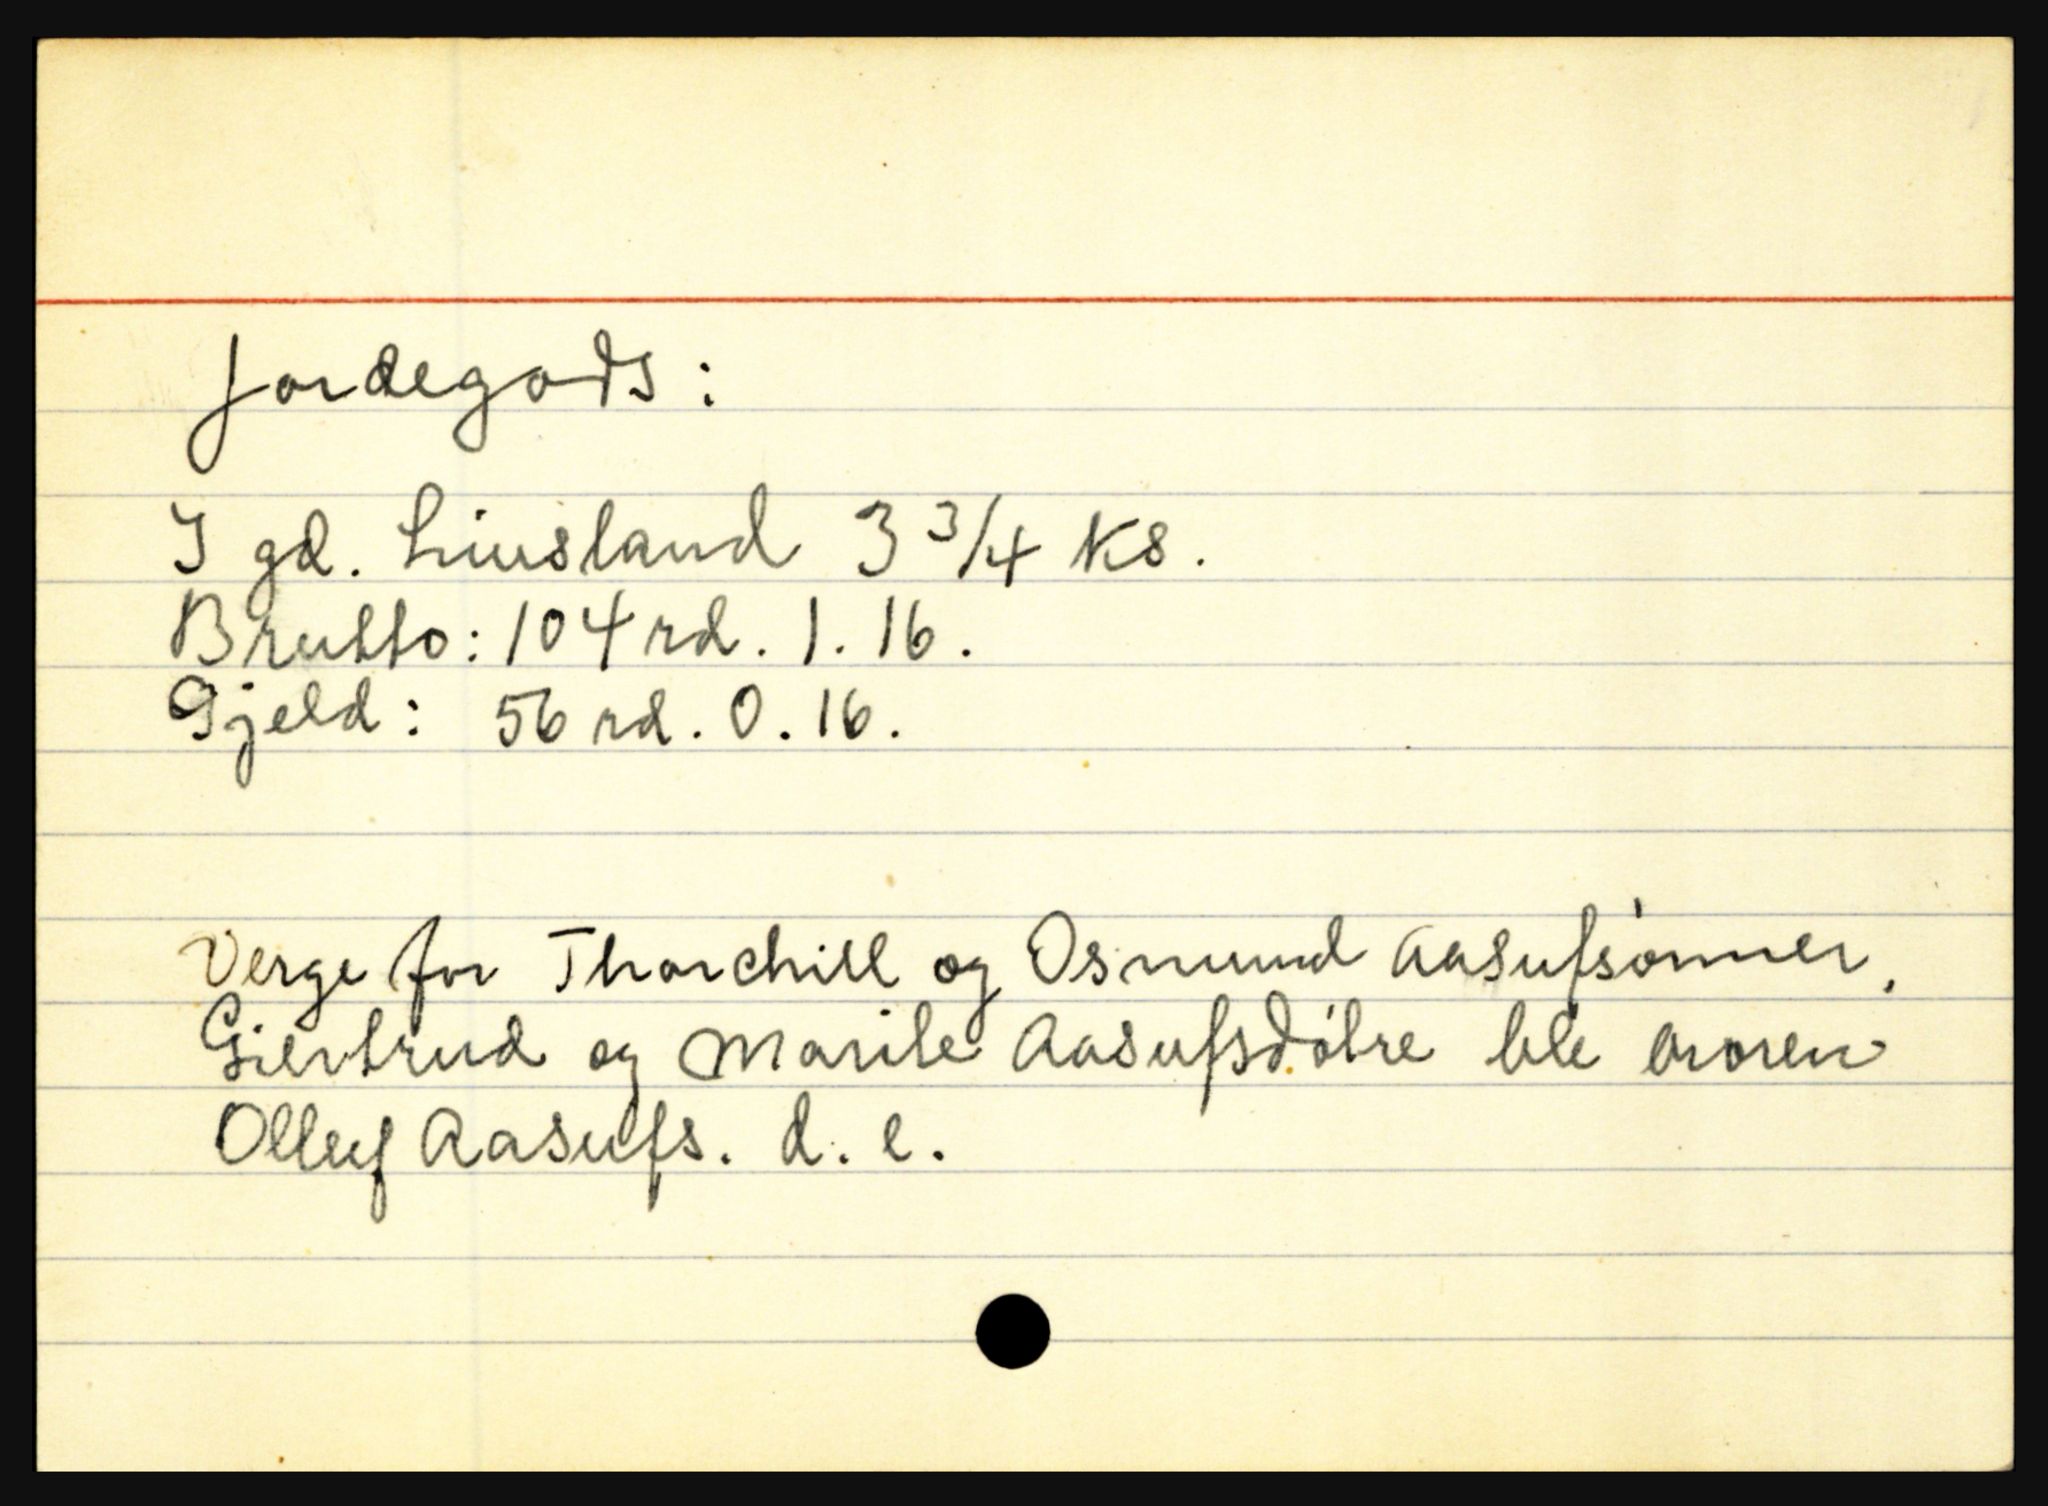 Jordegods:
I gd. Liusland 3 3/4 Ks.
Brutto: 104 rd. 1. 16.
Gjeld: 56 rd. 0. 16.
Verge for Thorchill og Osmund Aasufsönner.
Giertrud og Marite Aasufsdötre ble broren
Olluf Aasufs. d. e.